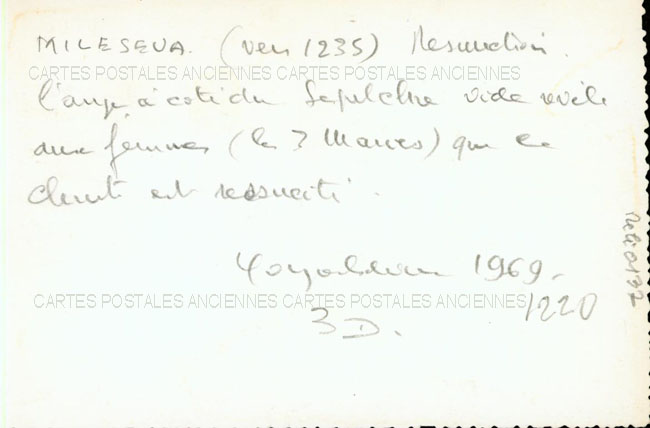 MILESEVA. (vers 1235) Resurrection.
CARTES POSTALES ANCIENNES CARTES POSTALES ANCIENNES
l'ange à coté du Sepulchre vide révèle
aux femmes (les 3 Maries) que le
Christ est ressucité.
Yougoslavie 1969.
CARTES POSTALES ANCIENNES CARTES POSTALES ANCIENNES
1220
3D.